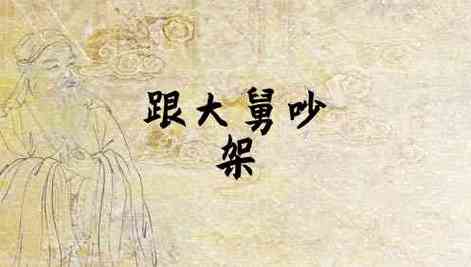 跟大舅吵
架